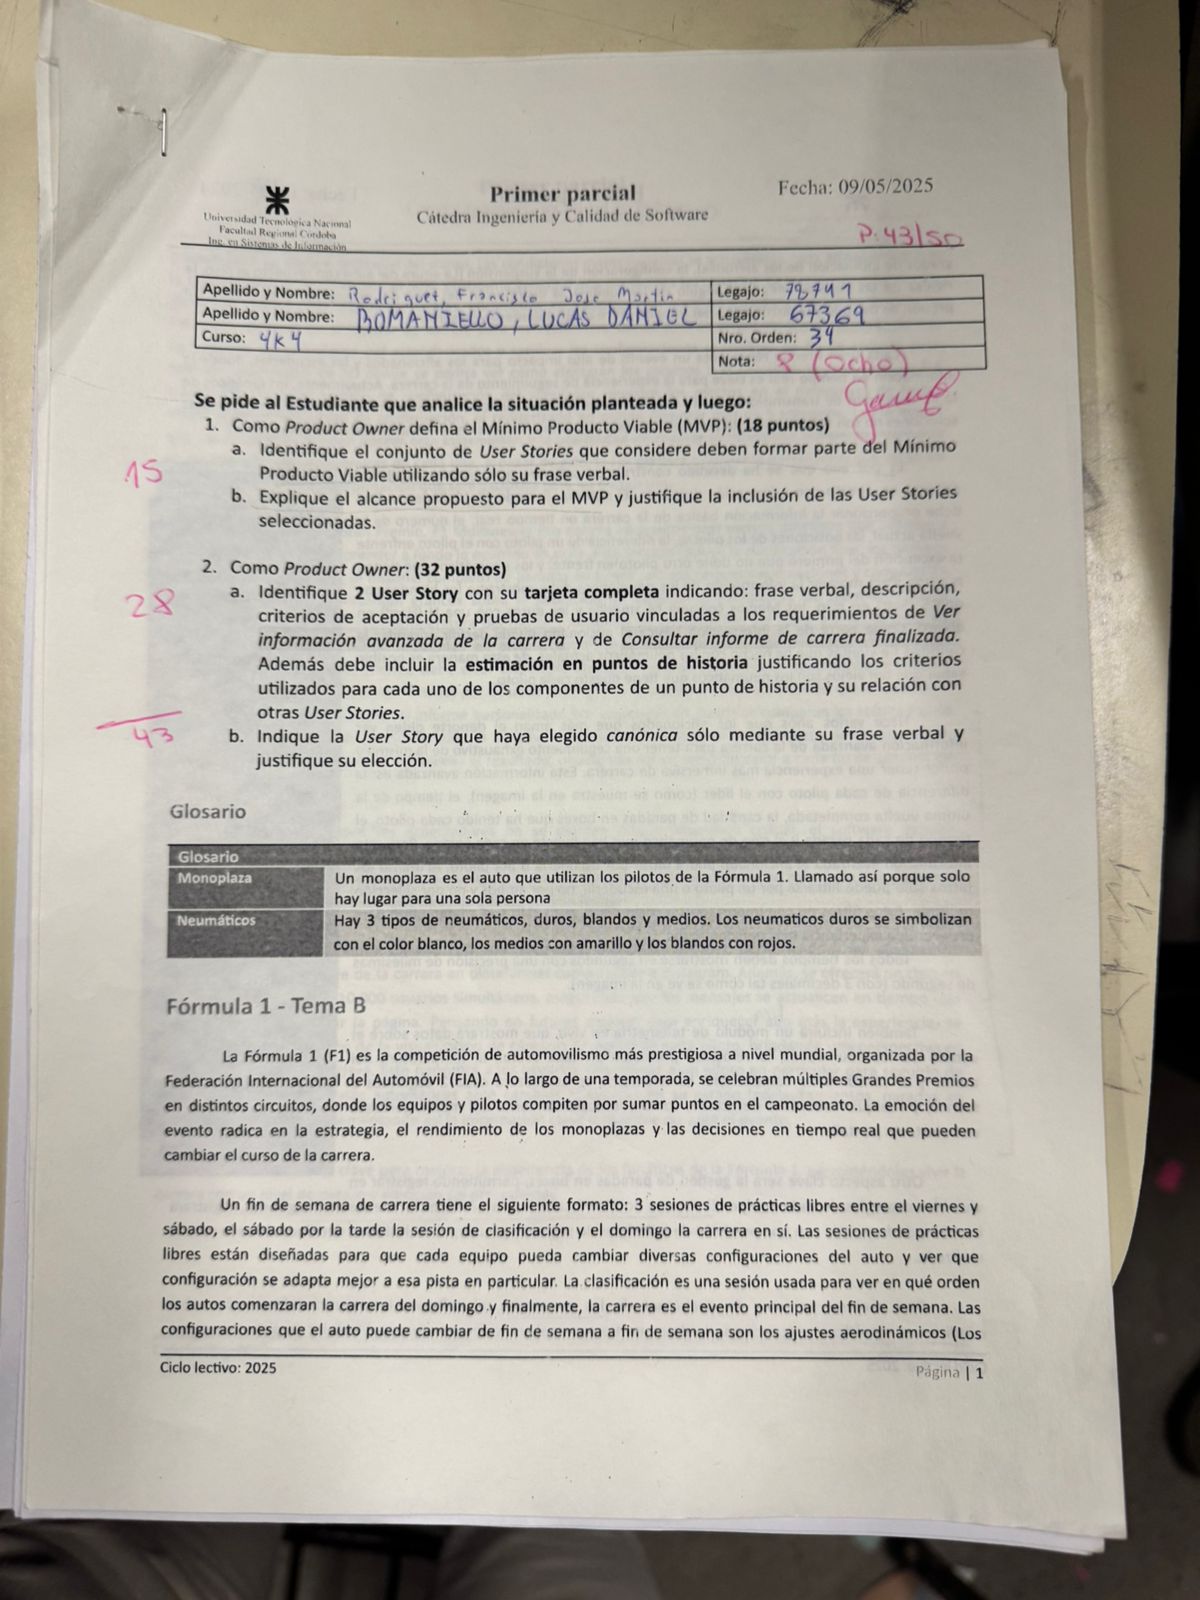 Universidad Tecnológica Nacional
Facultad Regional Córdoba
Ing. en Sistemas de Información
Primer parcial
Cátedra Ingeniería y Calidad de Software
Fecha: 09/05/2025
P: 43/50
Apellido y Nombre: Rodriguez, Francisco Jose Martin Legajo: 78741
Apellido y Nombre: ROMANIELLO, LUCAS DANIEL Legajo: 67369
Curso: 4K4 Nro. Orden: 34
Nota: 8 (Ocho)
Se pide al Estudiante que analice la situación planteada y luego:
1. Como Product Owner defina el Mínimo Producto Viable (MVP): (18 puntos)
15
a. Identifique el conjunto de User Stories que considere deben formar parte del Mínimo
Producto Viable utilizando sólo su frase verbal.
b. Explique el alcance propuesto para el MVP y justifique la inclusión de las User Stories
seleccionadas.
2. Como Product Owner: (32 puntos)
28
a. Identifique 2 User Story con su tarjeta completa indicando: frase verbal, descripción,
criterios de aceptación y pruebas de usuario vinculadas a los requerimientos de Ver
información avanzada de la carrera y de Consultar informe de carrera finalizada.
Además debe incluir la estimación en puntos de historia justificando los criterios
utilizados para cada uno de los componentes de un punto de historia y su relación con
otras User Stories.
43
b. Indique la User Story que haya elegido canónica sólo mediante su frase verbal y
justifique su elección.
Glosario
Glosario
Monoplaza Un monoplaza es el auto que utilizan los pilotos de la Fórmula 1. Llamado así porque solo
hay lugar para una sola persona
Neumáticos Hay 3 tipos de neumáticos, duros, blandos y medios. Los neumaticos duros se simbolizan
con el color blanco, los medios con amarillo y los blandos con rojos.
Fórmula 1 - Tema B
La Fórmula 1 (F1) es la competición de automovilismo más prestigiosa a nivel mundial, organizada por la
Federación Internacional del Automóvil (FIA). A lo largo de una temporada, se celebran múltiples Grandes Premios
en distintos circuitos, donde los equipos y pilotos compiten por sumar puntos en el campeonato. La emoción del
evento radica en la estrategia, el rendimiento de los monoplazas y las decisiones en tiempo real que pueden
cambiar el curso de la carrera.
Un fin de semana de carrera tiene el siguiente formato: 3 sesiones de prácticas libres entre el viernes y
sábado, el sábado por la tarde la sesión de clasificación y el domingo la carrera en sí. Las sesiones de prácticas
libres están diseñadas para que cada equipo pueda cambiar diversas configuraciones del auto y ver que
configuración se adapta mejor a esa pista en particular. La clasificación es una sesión usada para ver en qué orden
los autos comenzaran la carrera del domingo y finalmente, la carrera es el evento principal del fin de semana. Las
configuraciones que el auto puede cambiar de fin de semana a fin de semana son los ajustes aerodinámicos (Los
Ciclo lectivo: 2025
Página | 1